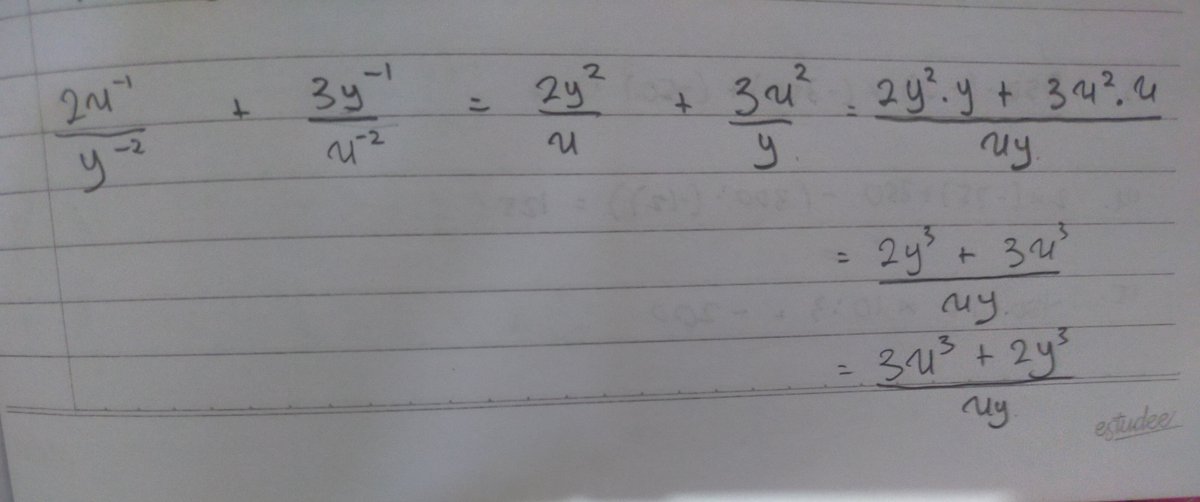 2x⁻¹/y⁻² + 3y⁻¹/x⁻² = 2y²/x + 3x²/y = (2y².y + 3x².x)/xy
= (2y³ + 3x³)/xy
= (3x³ + 2y³)/xy
estudee